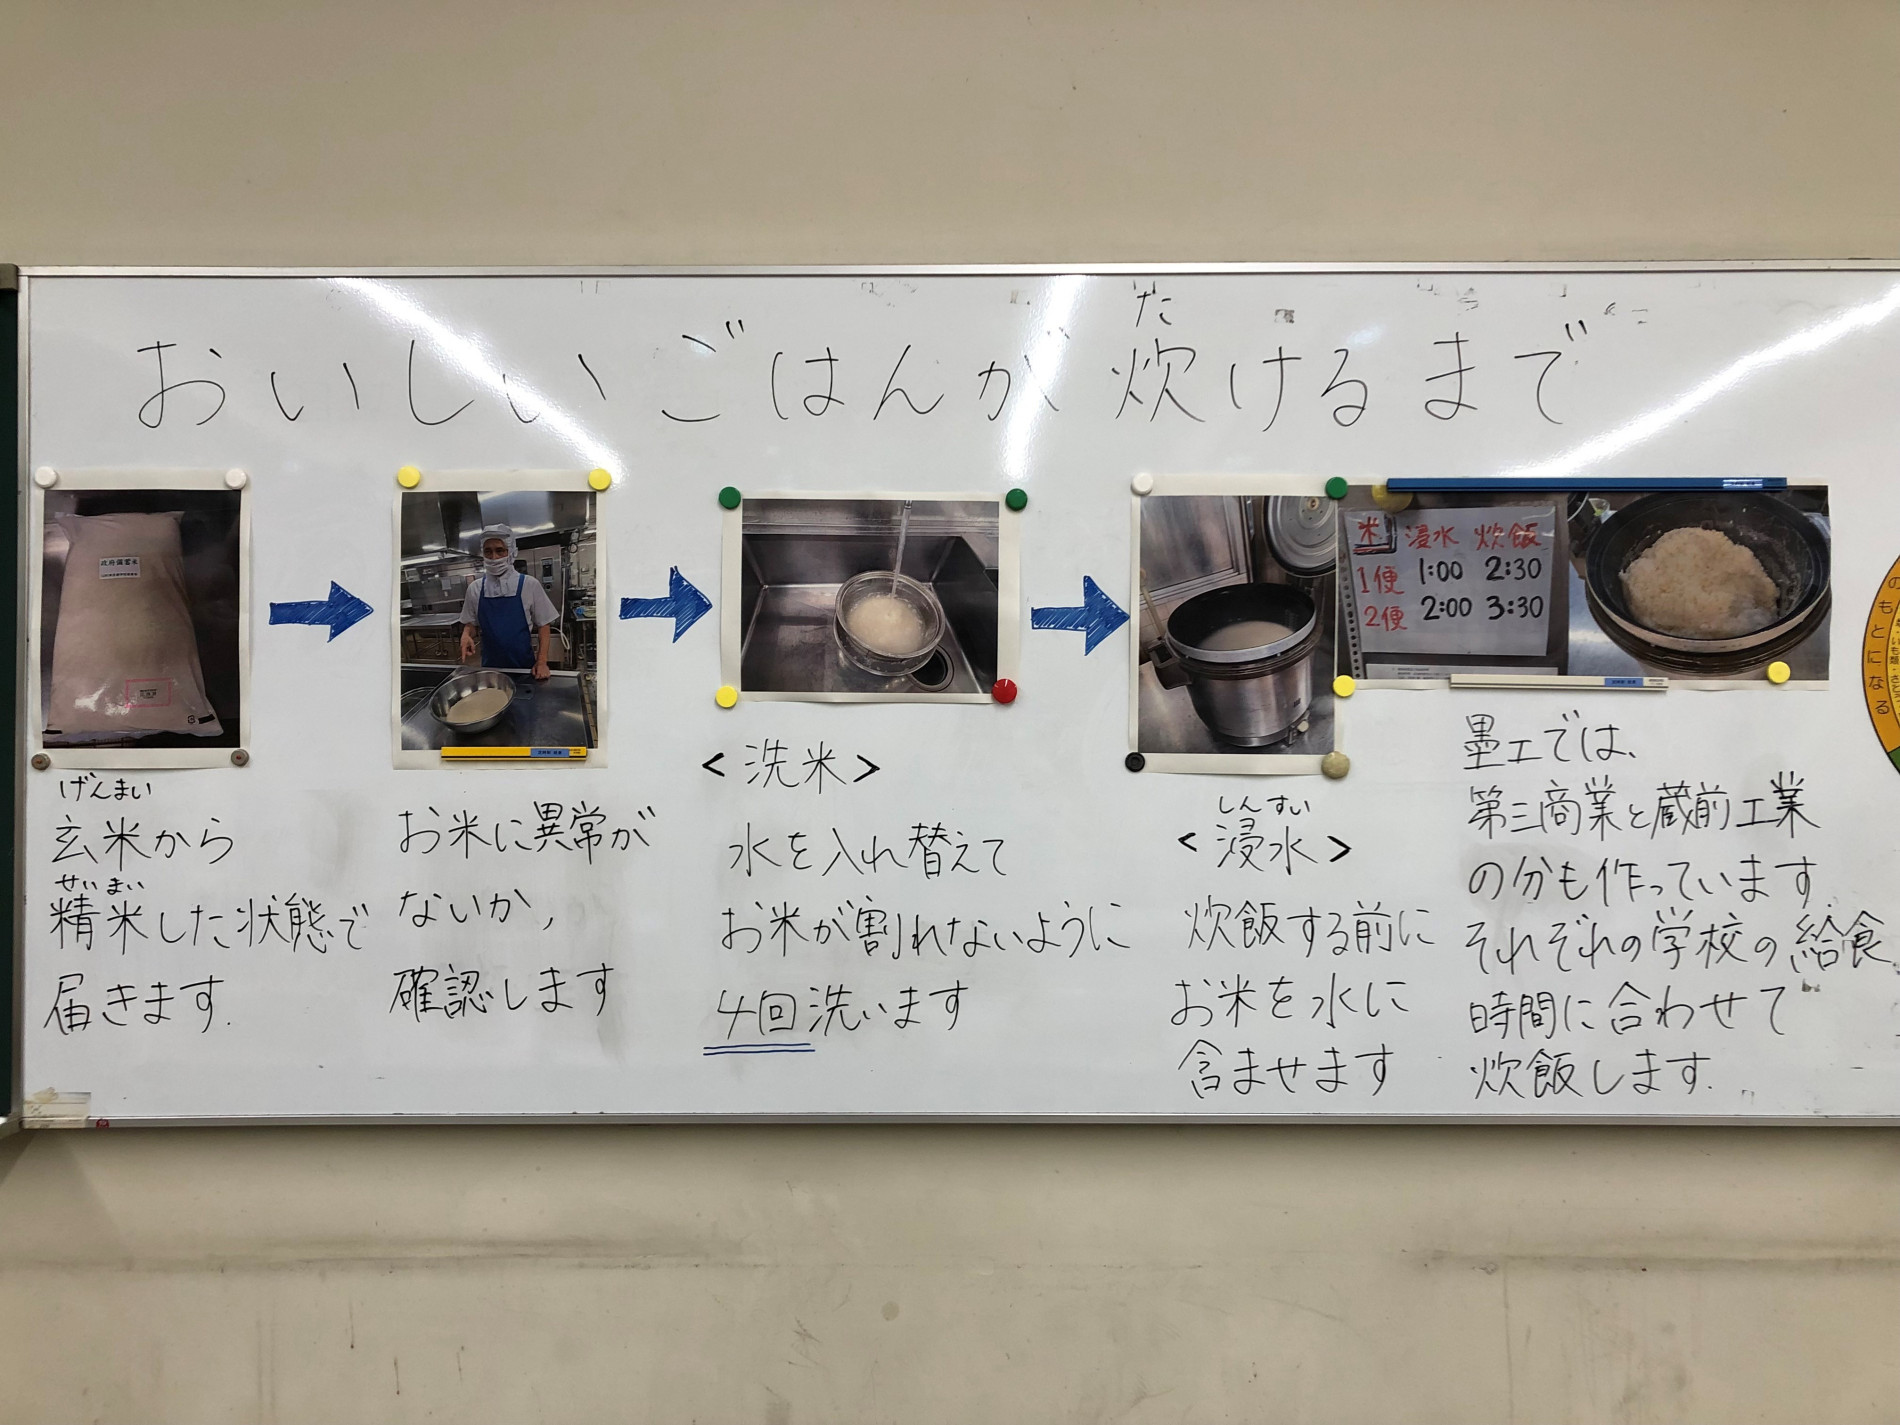 おいしいごはんが炊けるまで
た
政府備蓄米
げんまい
玄米から
せいまい
精米した状態で
届きます.
お米に異常が
ないか,
確認します
<洗米>
水を入れ替えて
お米が割れないように
4回洗います
しんすい
<浸水>
炊飯する前に
お米を水に
含ませます
米 浸水 炊飯
1便 1:00 2:30
2便 2:00 3:30
墨工では、
第三商業と蔵前工業
の分も作っています.
それぞれの学校の給食
時間に合わせて
炊飯します.
のもとになる